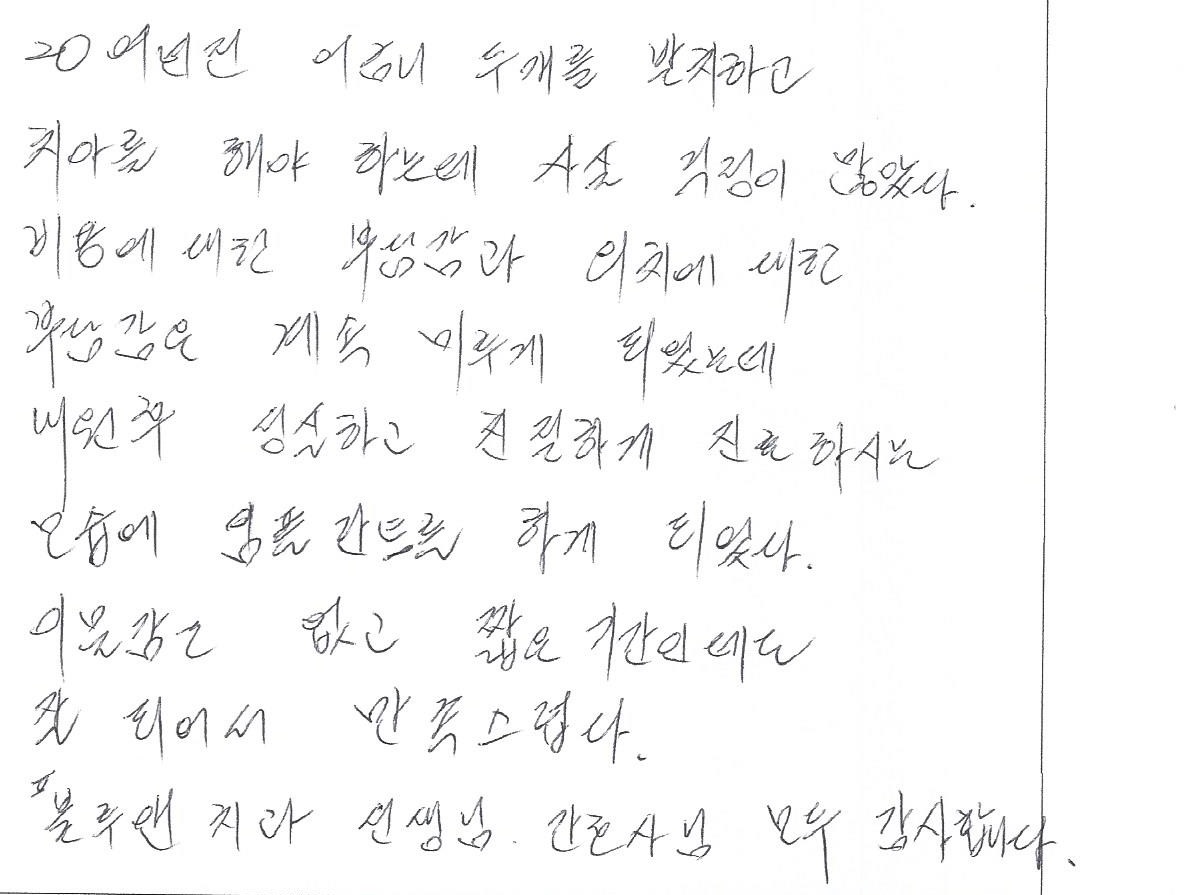 20여년전 어금니 두개를 발치하고
치아를 해야 하는데 사실 걱정이 많았다.
비용에 대한 부담감과 의치에 대한
부담감은 계속 미루게 되었는데
내원후 성실하고 친절하게 진료하시는
모습에 임플란트를 하게 되었다.
이물감도 없고 짧은 기간인데도
잘 되어서 만족스럽다.
블루앤 치과 선생님. 간호사님 모두 감사합니다.